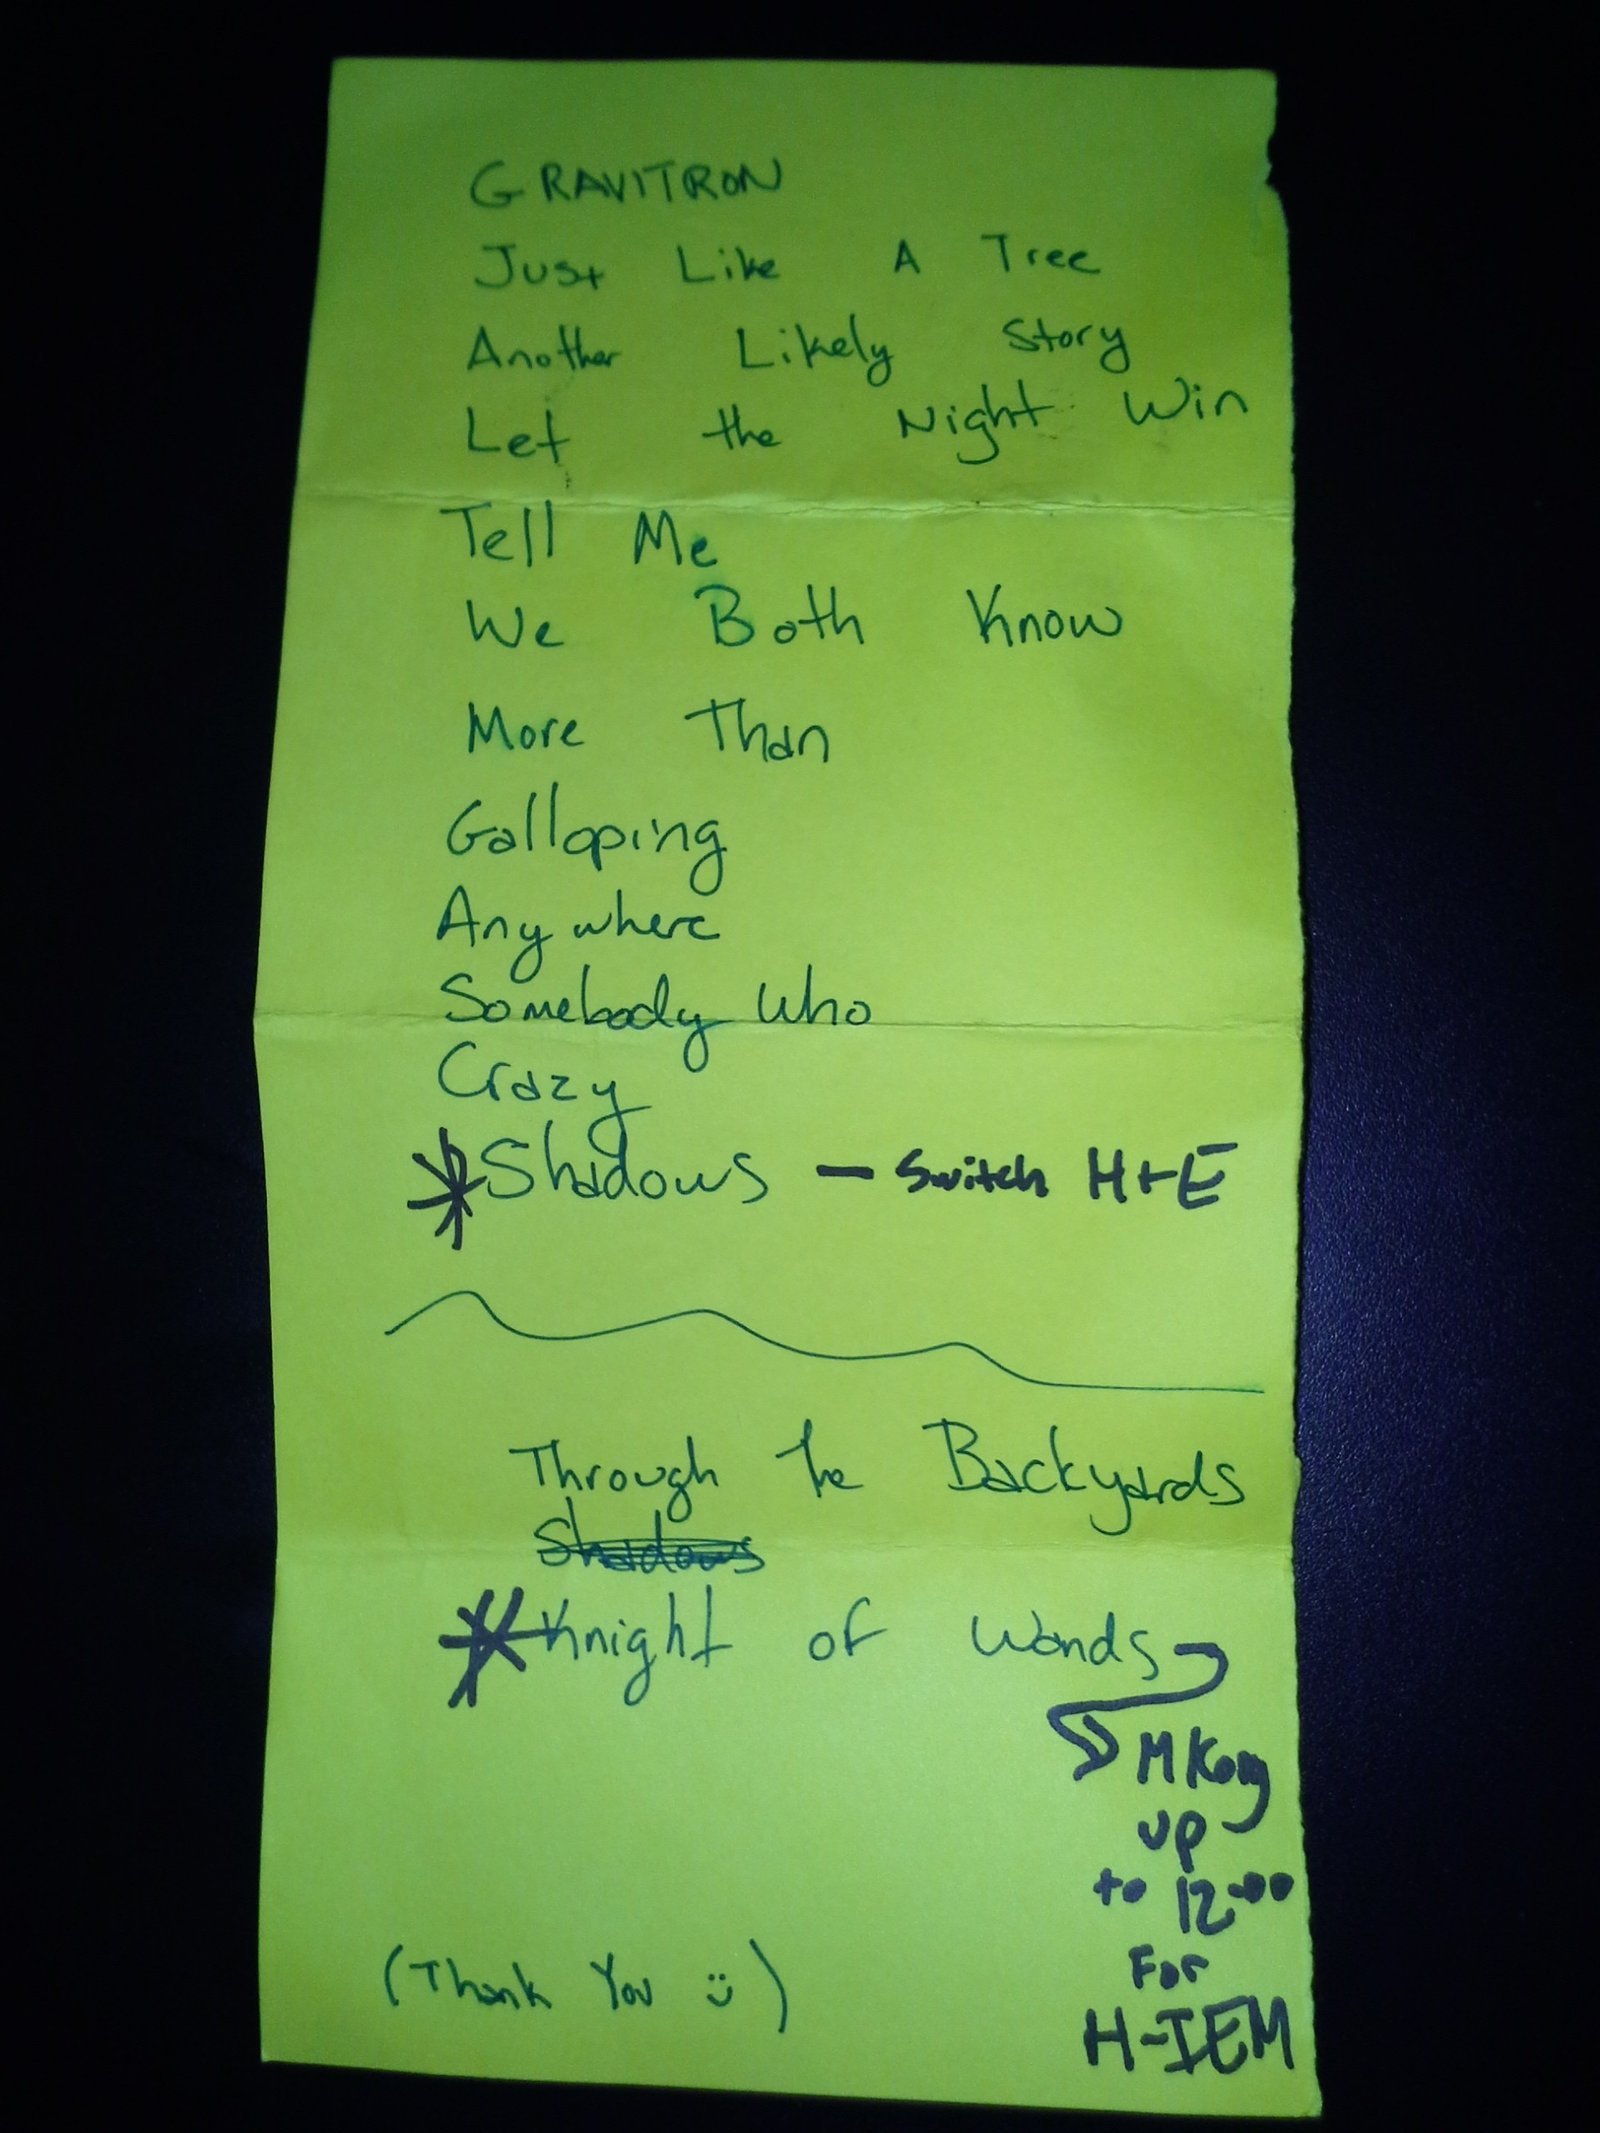 GRAVITRON
Just Like A Tree
Another Likely Story
Let the Night Win
Tell Me
We Both Know
More Than
Galloping
Anywhere
Somebody Who
Crazy
*Shadows — Switch H+E
Through the Backyards
Shadows
*Knight of Wands
MKorg
up
to 12:00
For
H-IEM
(Thank You :))